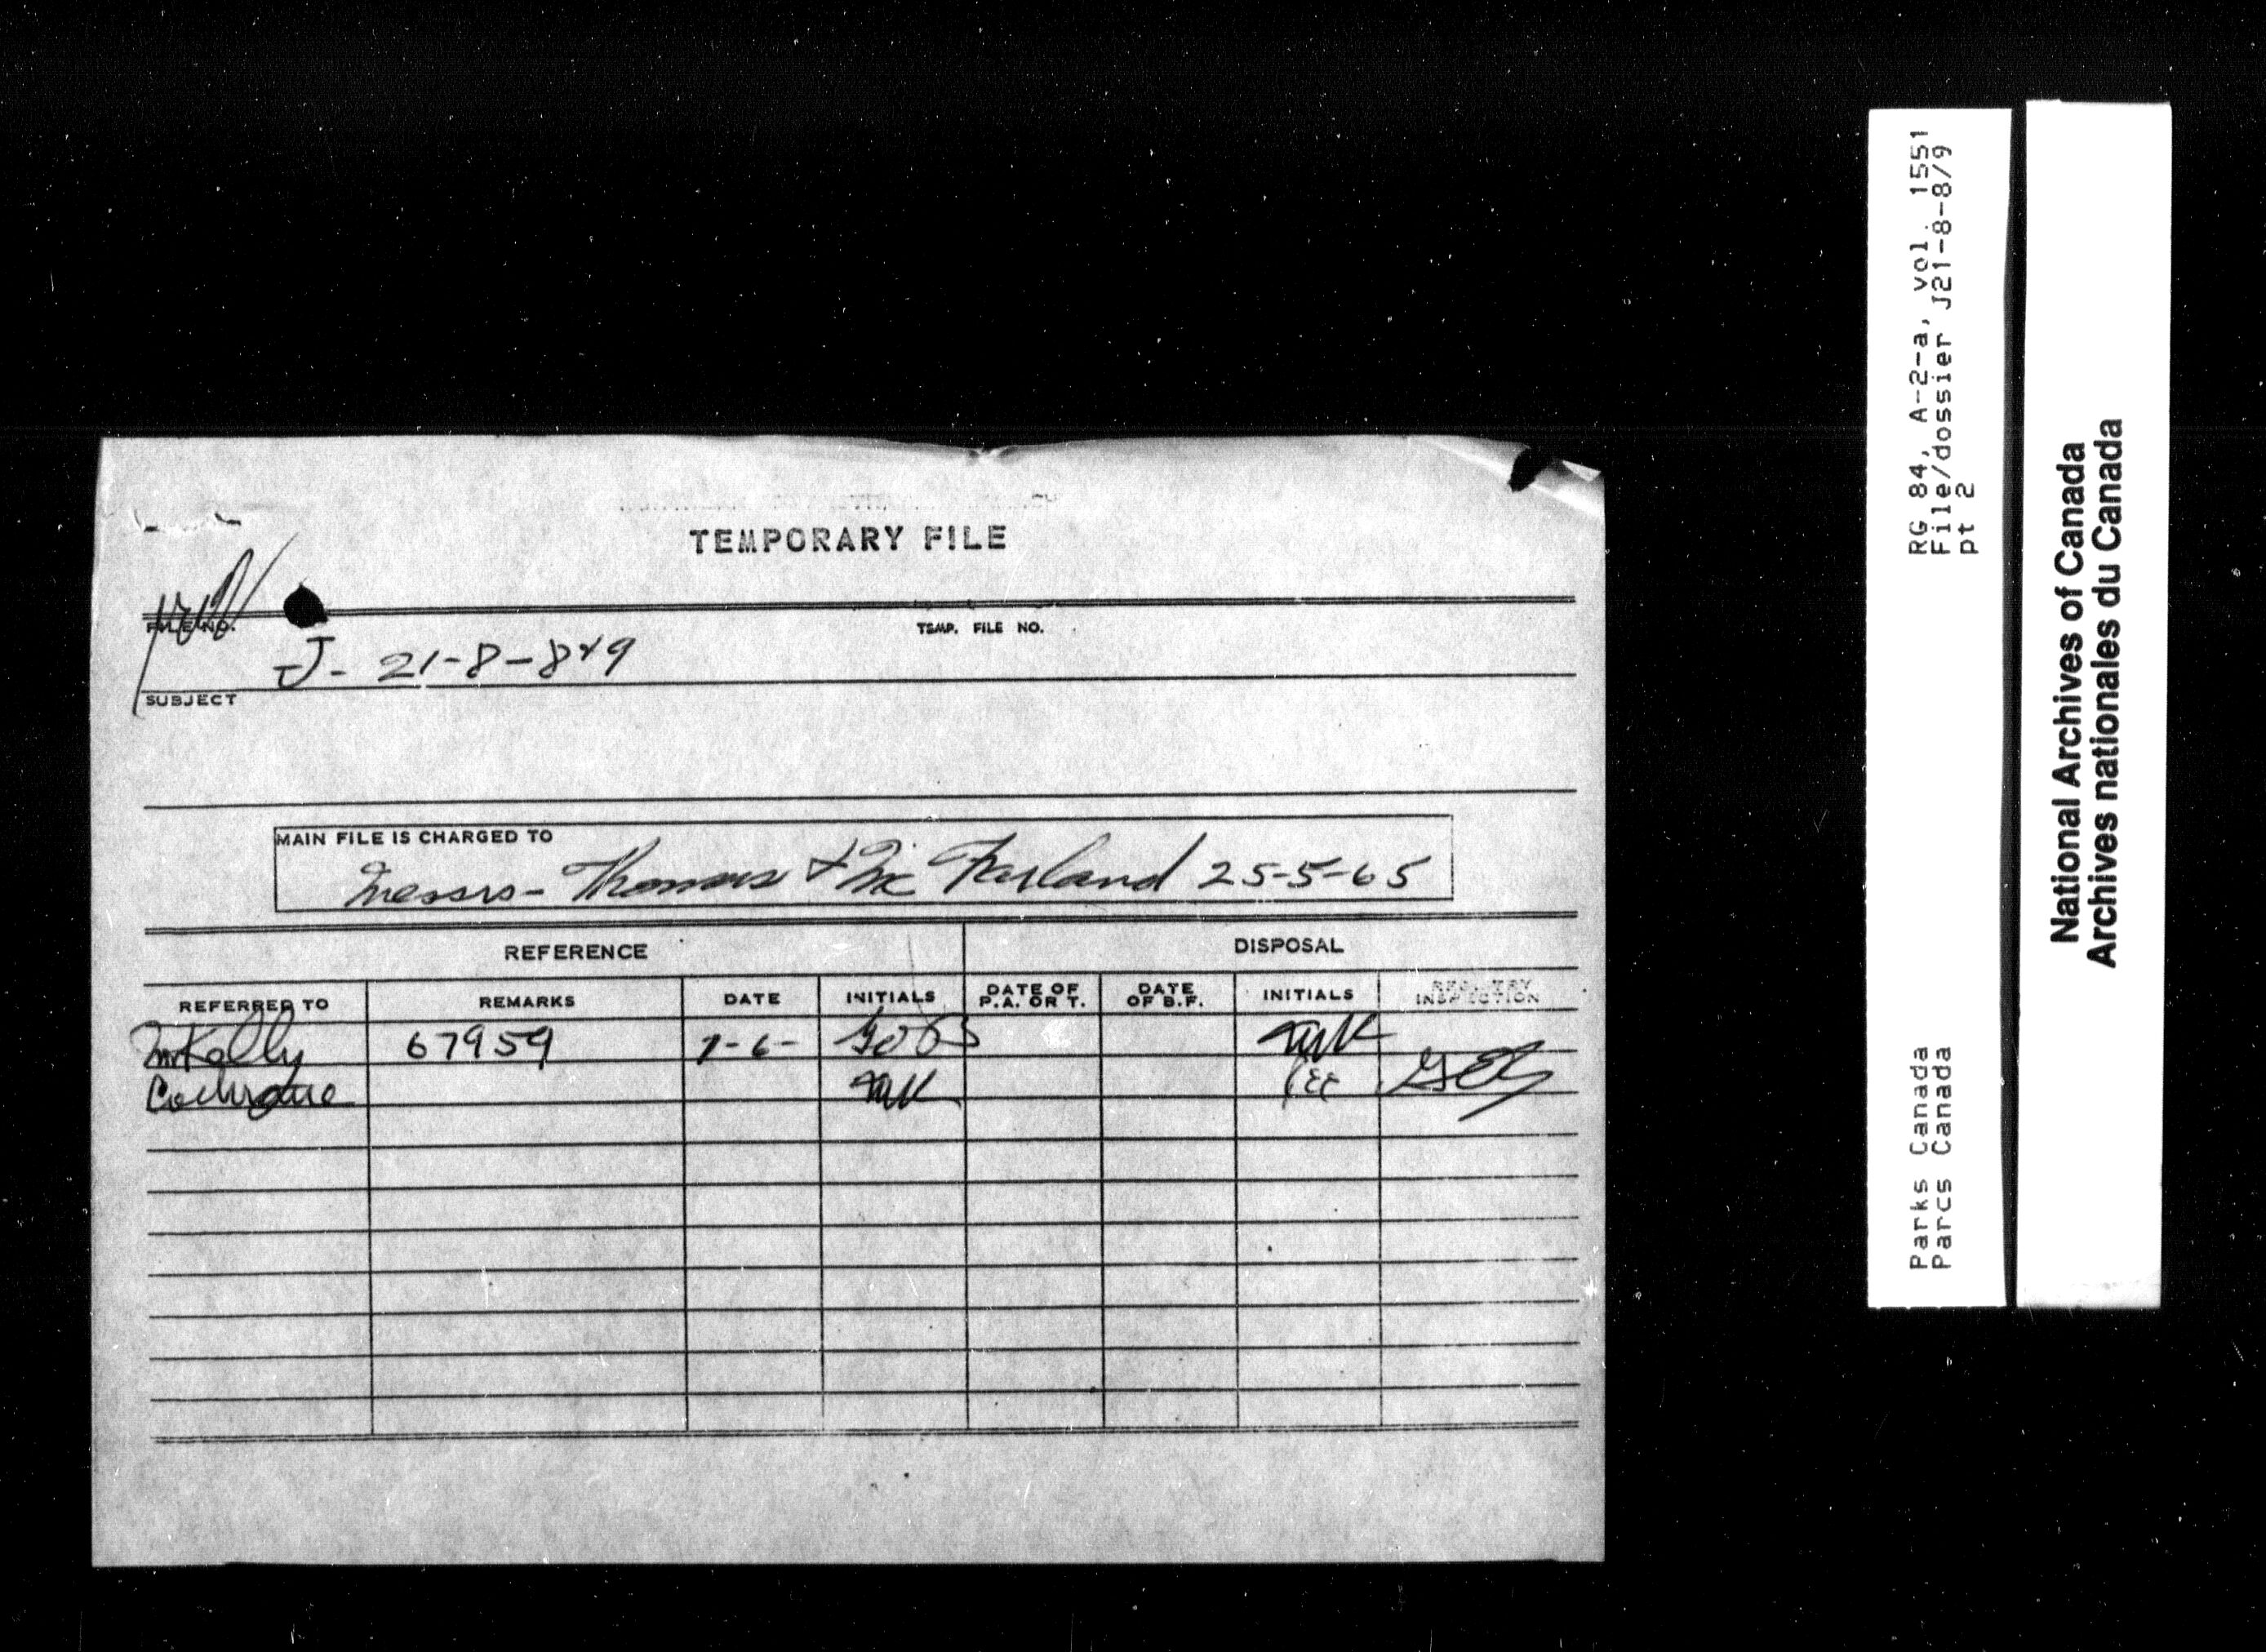 TEMPORARY FILE
FILE NO.
TEMP. FILE NO.
J- 21-8-8&9
SUBJECT
MAIN FILE IS CHARGED TO
Messrs- Thomas & McFarland 25-5-65
REFERENCE DISPOSAL
REFERRED TO REMARKS DATE INITIALS DATE OF P.A. OR T. DATE OF B.F. INITIALS REGISTRY INSPECTION
Mr Kelly 67959 1-6-
Cochrane
RG 84, A-2-a, vol. 1551
File/dossier J21-8-8/9
pt 2
Parks Canada
Parcs Canada
National Archives of Canada
Archives nationales du Canada